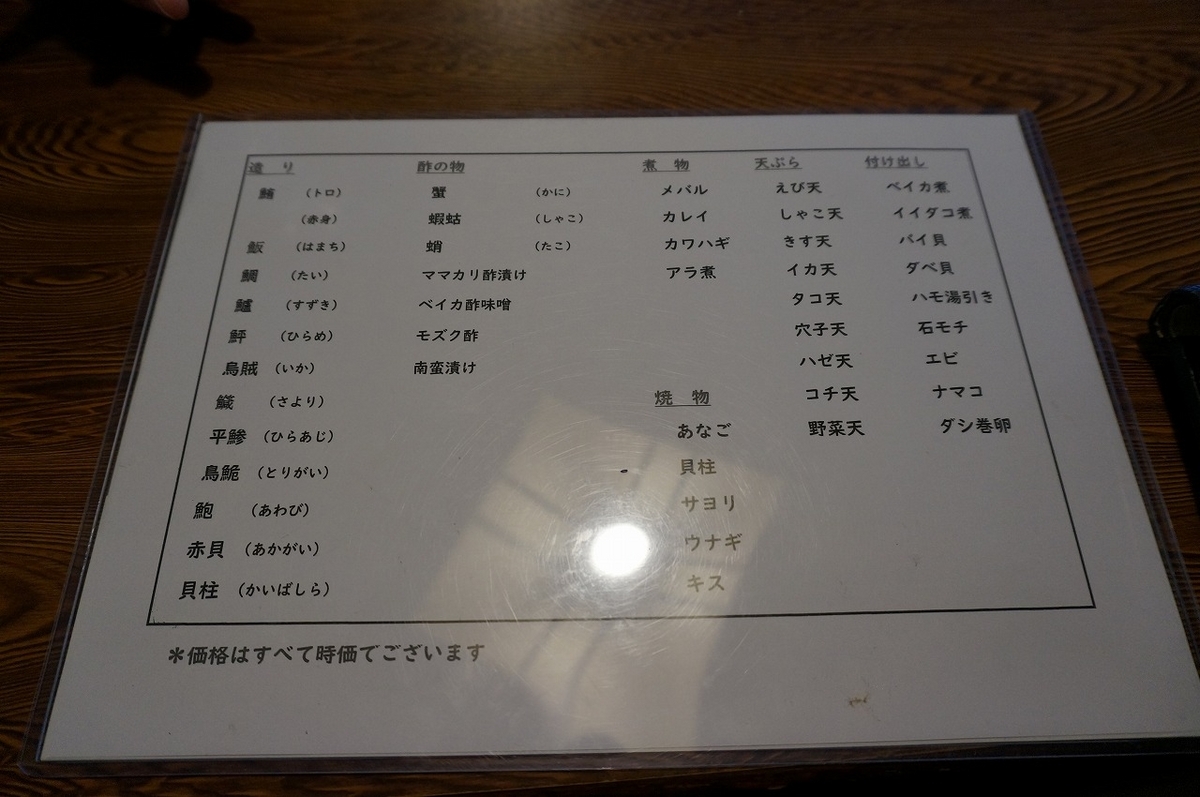 造り
鮪 （トロ）
（赤身）
飯 （はまち）
鯛 （たい）
鱸 （すずき）
鮃 （ひらめ）
烏賊 （いか）
（さより）
平鯵 （ひらあじ）
（とりがい）
鮑 （あわび）
赤貝 （あかがい）
貝柱 （かいばしら）
酢の物
蟹 （かに）
蝦蛄 （しゃこ）
蛸 （たこ）
ママカリ酢漬け
ベイカ酢味噌
モズク酢
南蛮漬け
煮物
メバル
カレイ
カワハギ
アラ煮
焼物
あなご
貝柱
サヨリ
ウナギ
キス
天ぷら
えび天
しゃこ天
きす天
イカ天
タコ天
穴子天
ハゼ天
コチ天
野菜天
付け出し
ベイカ煮
イイダコ煮
バイ貝
ダベ貝
ハモ湯引き
石モチ
エビ
ナマコ
ダシ巻卵
＊価格はすべて時価でございます